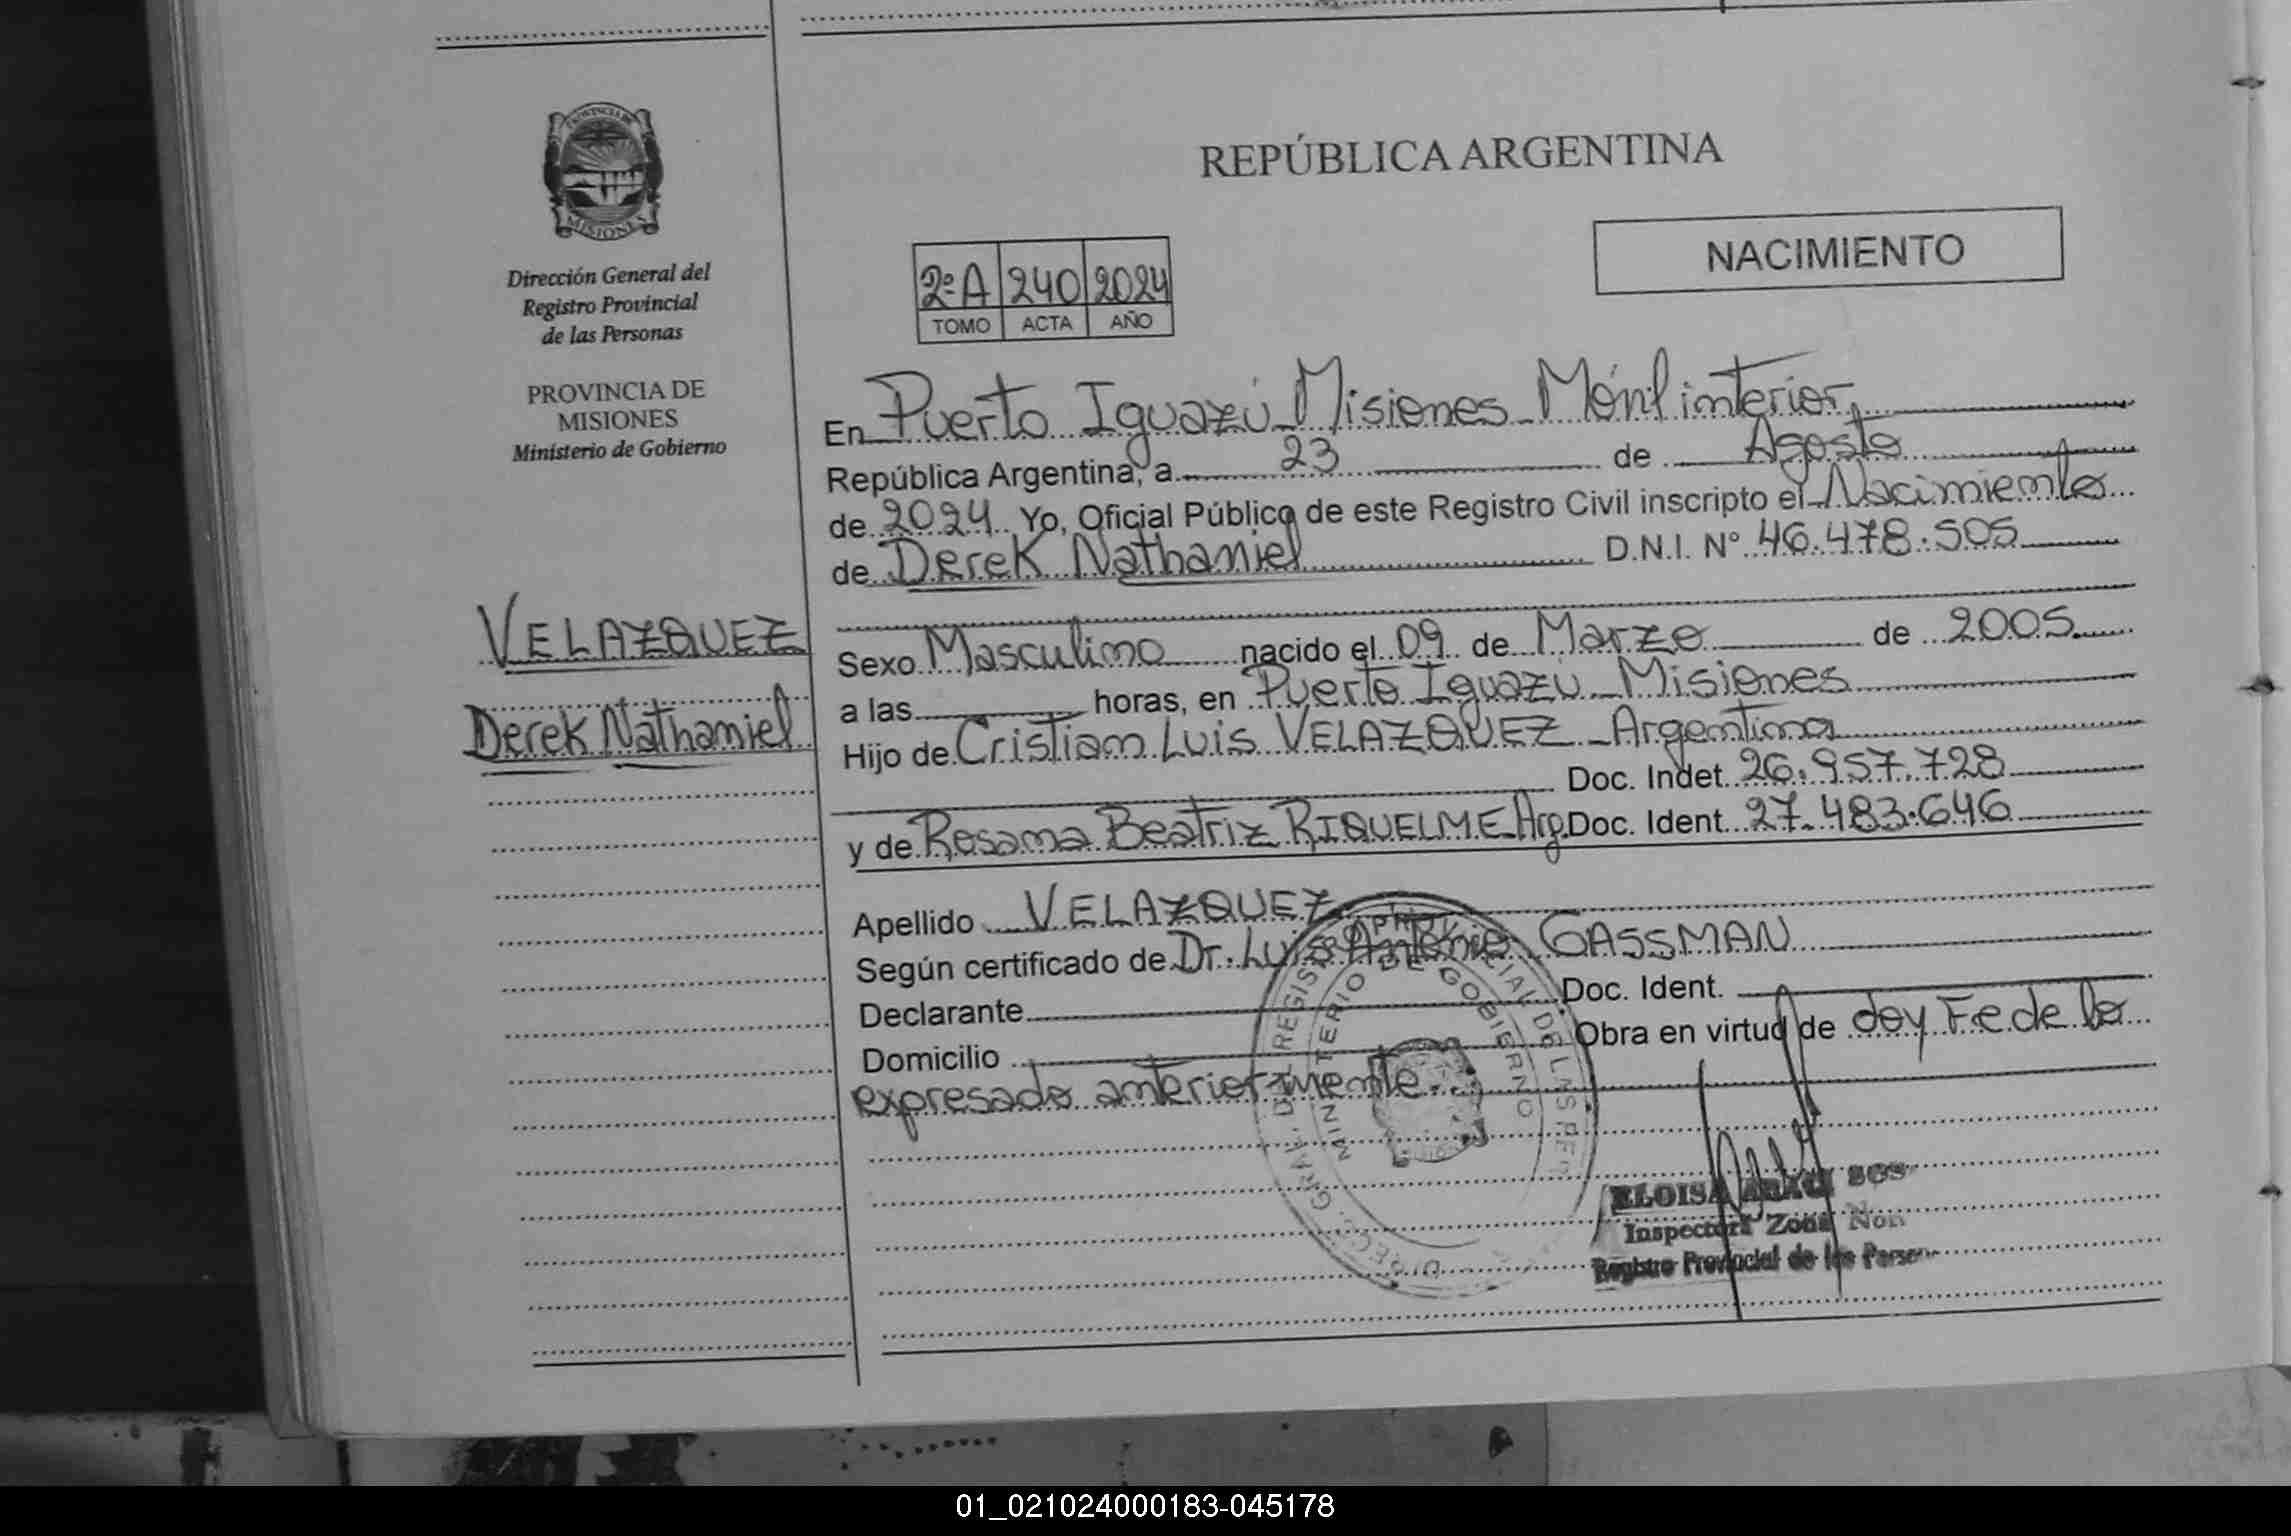 PROVINCIA DE
MISIONES
Dirección General del
Registro Provincial
de las Personas
PROVINCIA DE
MISIONES
Ministerio de Gobierno
VELAZQUEZ
Derek Nathaniel
REPÚBLICA ARGENTINA
NACIMIENTO
2ºA 240 2024
TOMO ACTA AÑO
En Puerto Iguazú Misiones Móvil interior,
República Argentina, a 23 de Agosto
de 2024 Yo, Oficial Público de este Registro Civil inscripto el Nacimiento
de Derek Nathaniel D.N.I. Nº 46.478.505
Sexo Masculino nacido el 09 de Marzo de 2005
a las horas, en Puerto Iguazú Misiones
Hijo de Cristian Luis VELAZQUEZ - Argentina
Doc. Indet. 26.957.728
y de Rosana Beatriz RIQUELME Arg. Doc. Ident. 27.483.646
Apellido VELAZQUEZ
Según certificado de Dr. Luis Antonio GASSMAN
Declarante Doc. Ident.
Domicilio Obra en virtud de doy Fe de lo
expresado anteriormente.
MINISTERIO DE GOBIERNO
ELOISA
Inspectora Zona
Registro Provincial de las
01_021024000183-045178